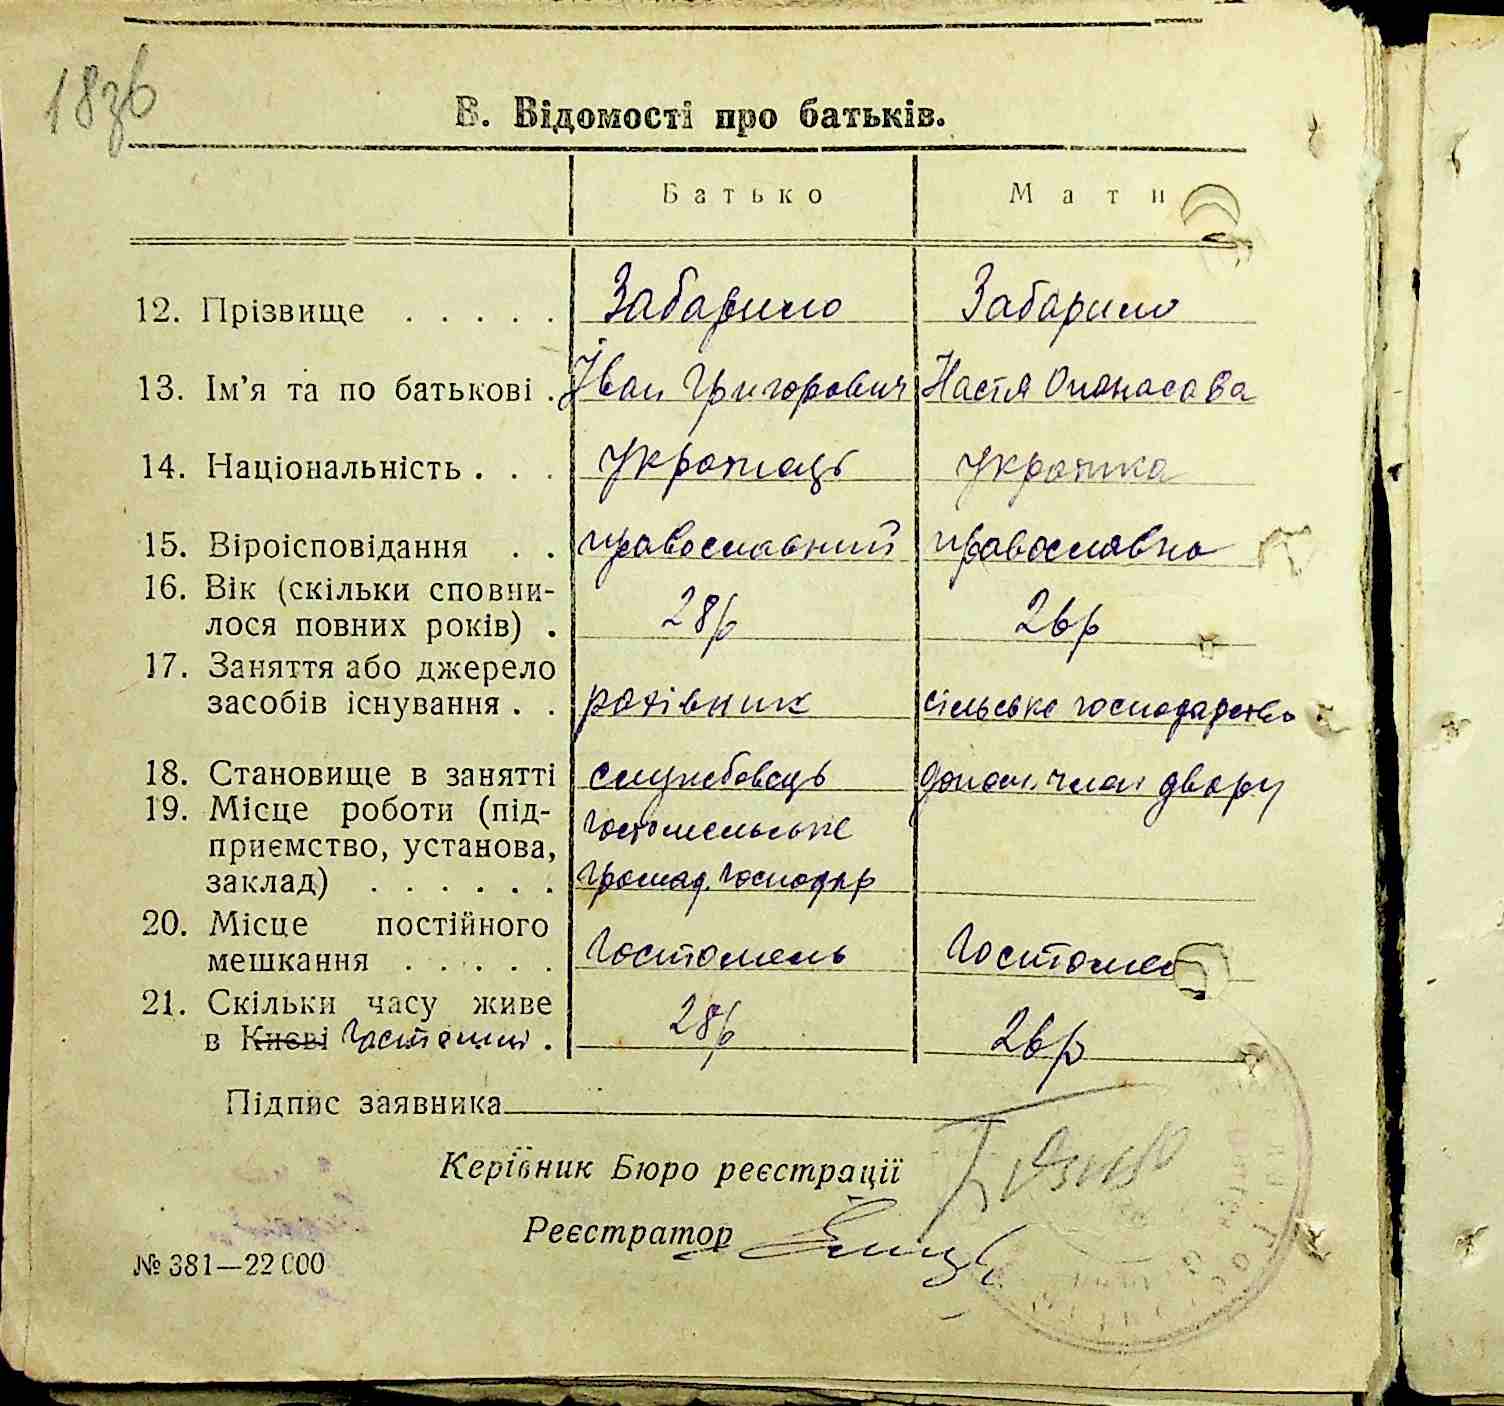 18зв
В. Відомості про батьків.
Батько Мати
12. Прізвище . . . . . Забарило Забарило
13. Ім’я та по батькові . Іван Григорович Настя Опанасова
14. Національність . . . Українець Українка
15. Віроісповідання . . православний православна
16. Вік (скільки сповни-
лося повних років) . 28р 26р
17. Заняття або джерело
засобів існування . . рахівник сільське господарство
18. Становище в занятті службовець допом. член двору
19. Місце роботи (під- Гостомельське
приємство, установа,
заклад) . . . . . . громад. господар
20. Місце постійного
мешкання . . . . . Гостомель Гостомел
21. Скільки часу живе 28р 26р
в Києві Гостомлі .
Підпис заявника
Керівник Бюро реєстрації
Реєстратор
№ 381—22 000